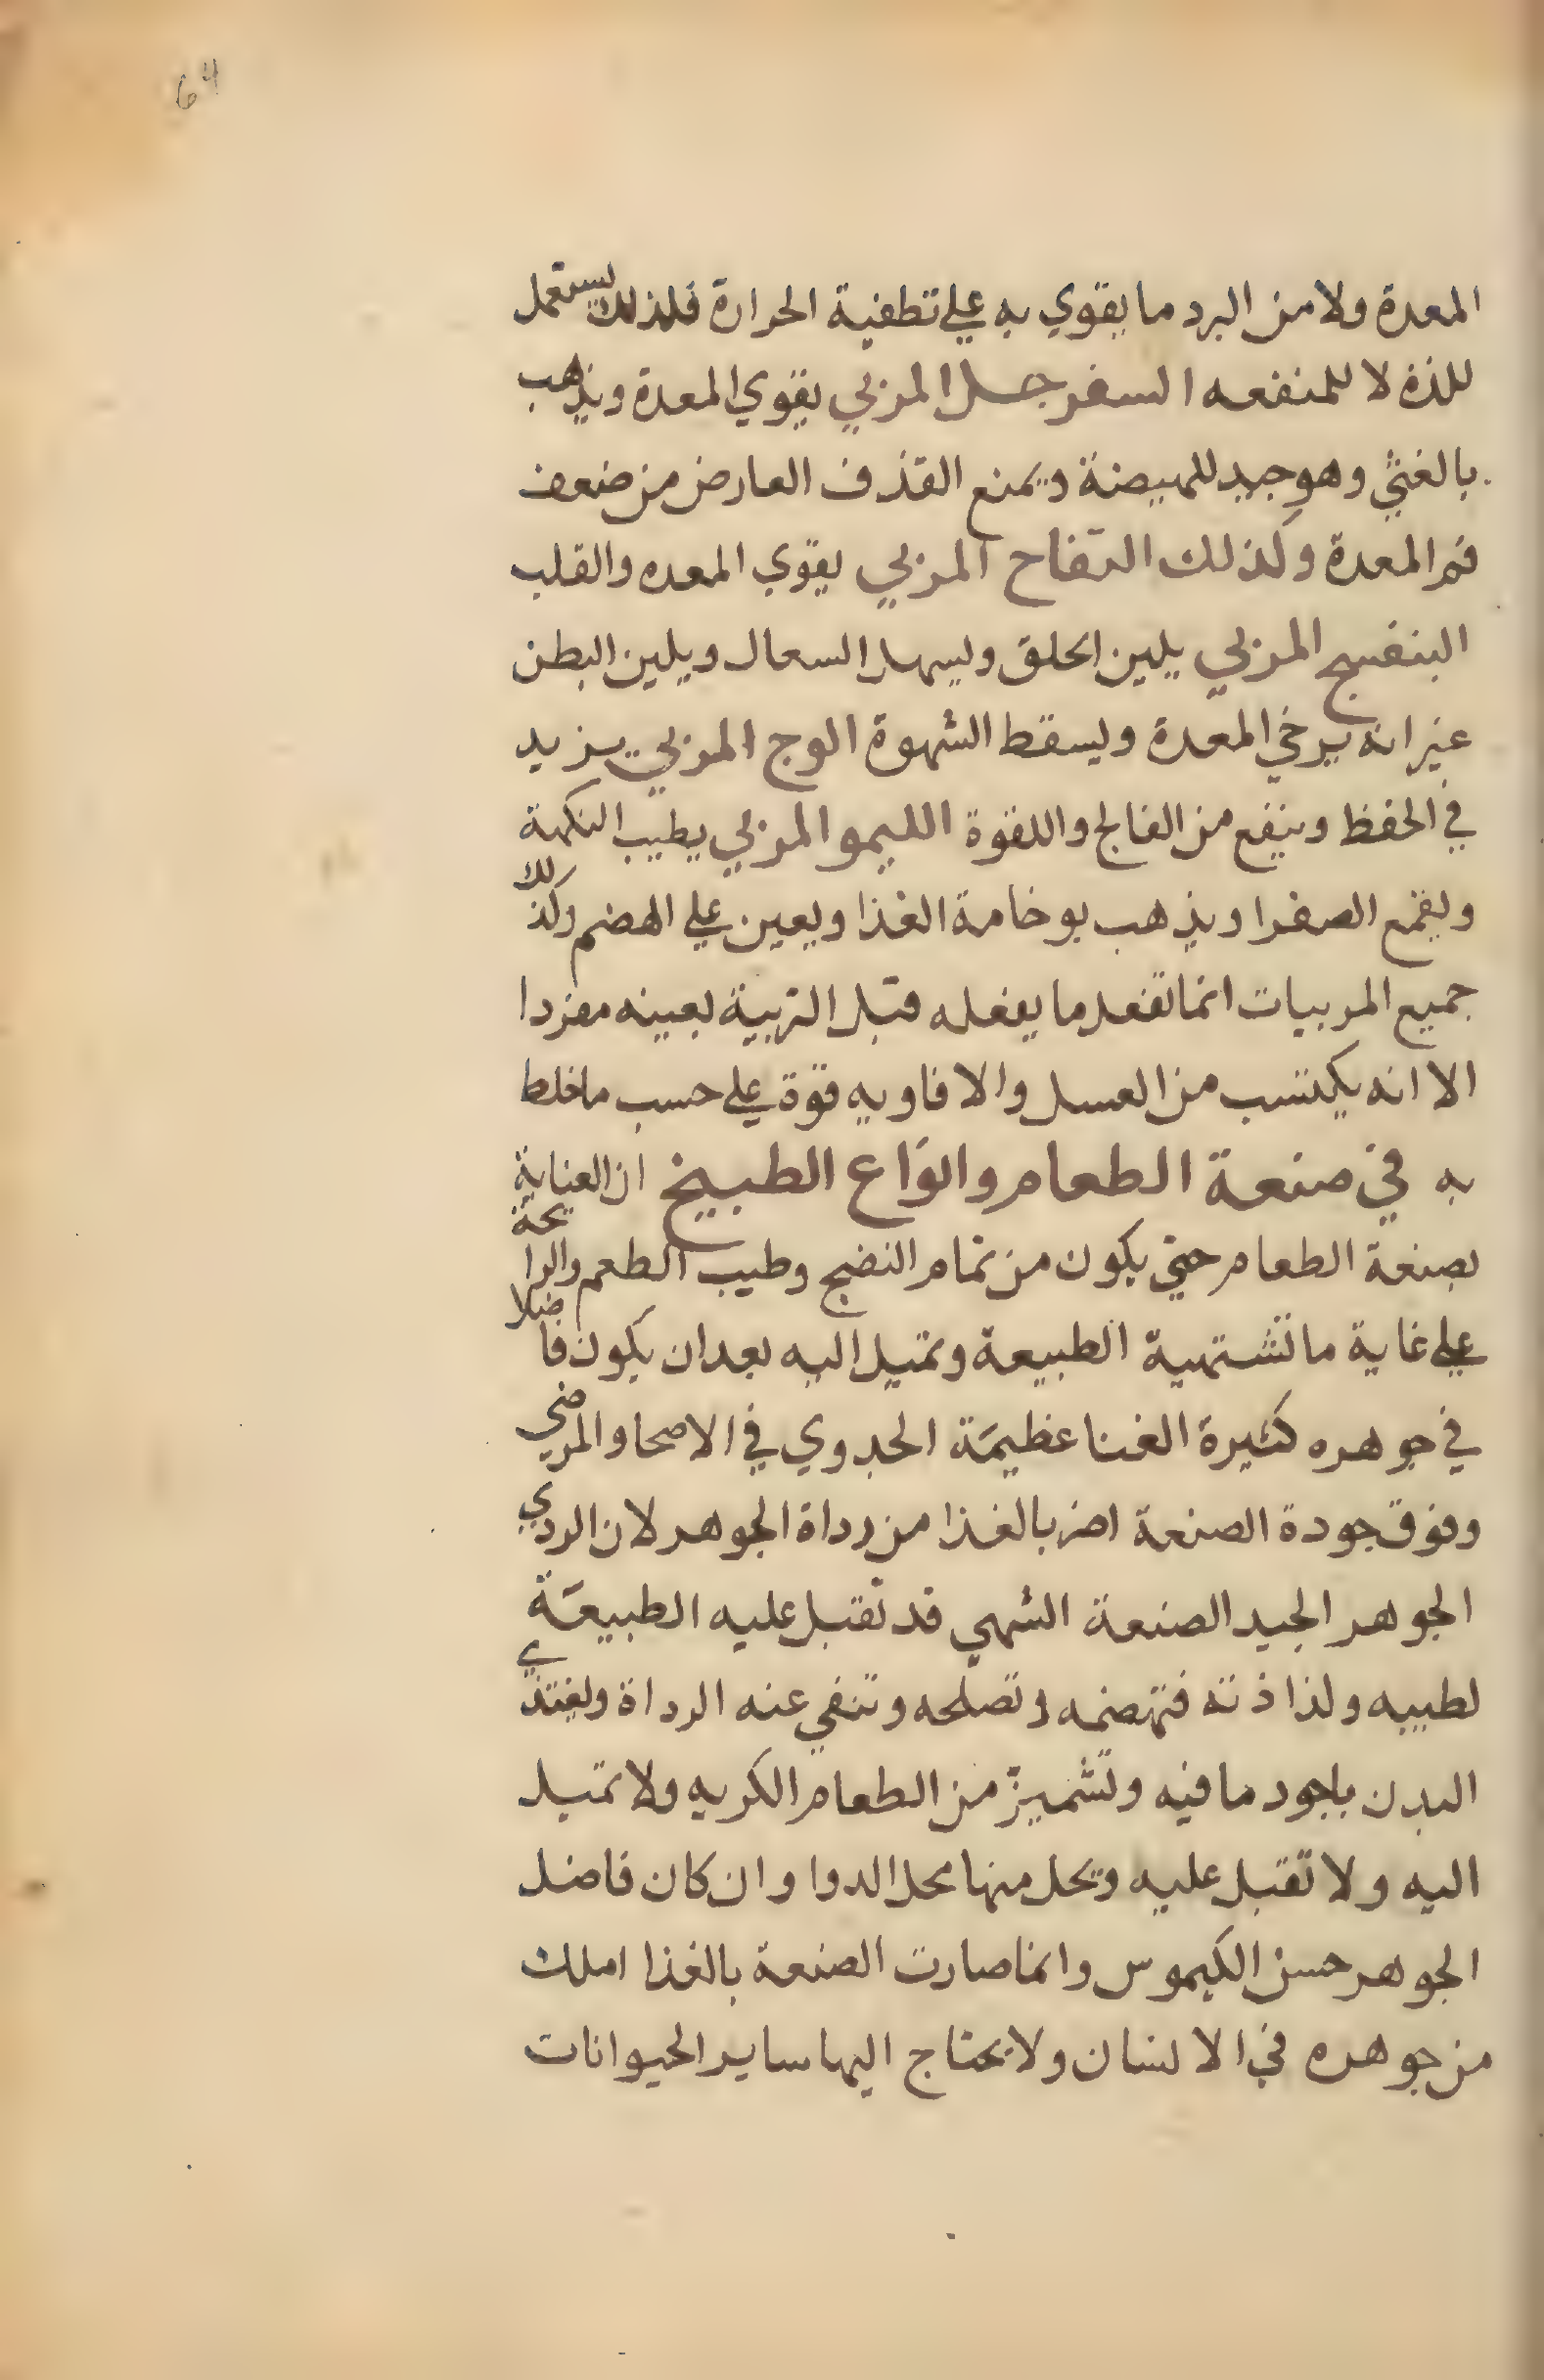 64
المعدة ولا من البرد ما يقوي به علي تطفية الحرارة فلذلك يستعمل
للذة لا للمنفعه السفرجل المربي يقوي المعدة ويذهب
بالغثي وهو جيد للهيضة ويمنع القذف العارض من ضعف
فم المعدة وكذلك التفاح المربي يقوي المعده والقلب
البنفسج المربي يلين الحلق ويسهل السعال ويلين البطن
غير انه يرخي المعدة ويسقط الشهوة الوج المربي يزيد
في الحفظ وينفع من الفالج واللقوة الليمو المربي يطيب النكهة
ويقمع الصفرا ويذهب بوخامة الغذا ويعين علي الهضم وكذلك
جميع المربيات انما تفعل ما يفعله قبل التربية بعينه مفردا
الا انه يكتسب من العسل والافاويه قوة علي حسب ما خلط
به في صنعة الطعام وانواع الطبيخ ان العناية
بصنعة الطعام حتي يكون من تمام النضج وطيب الطعم والرايحة
علي غاية ما تشتهية الطبيعة وتميل اليه بعد ان يكون فاضلا
في جوهره كثيرة الغنا عظيمة الجدوي في الاصحا والمرضي
وفوق جودة الصنعة اضر بالغذا من رداة الجوهر لان الردي
الجوهر الجيد الصنعة الشهي قد تقبل عليه الطبيعة
لطيبه ولذاذته فتهضمه وتصلحه وتنفي عنه الرداة ويغتذي
البدن باجود ما فيه وتشميز من الطعام الكريه ولا تميل
اليه ولا تقبل عليه ويحل منها محل الدوا وان كان فاضل
الجوهر حسن الكيموس وانما صارت الصنعة بالغذا املك
من جوهره في الانسان ولا يحتاج اليها ساير الحيوانات